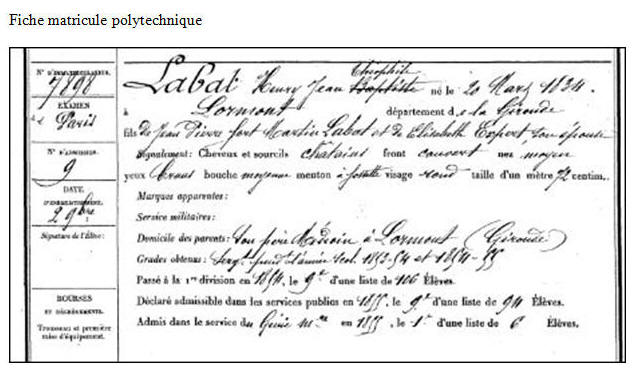 Fiche matricule polytechnique
N° D'IMMATRICULATION.
7898
EXAMEN
de Paris
N° D'ADMISSION.
9
DATE
D'ENREGISTREMENT.
2 9bre
Signature de l'Élève:
BOURSES
ET DÉGRÈVEMENTS.
Trousseau et première mise d'équipement.
Labat Henry Jean Théophile né le 20 Mars 1834.
à Lormont département de la Gironde
fils de Jean Pierre fort Martin Labat et de Elisabeth Expert, son épouse
Signalement: Cheveux et sourcils châtains front couvert nez moyen
yeux bruns bouche moyenne menton à fossette visage rond taille d'un mètre 72 centim.
Marques apparentes:
Service militaires:
Domicile des parents: son père Médecin à Lormont (Gironde)
Grades obtenus: Sergt. pendt. l'année scol. 1853-54 et 1854-55
Passé à la 1re division en 1854, le 9e d'une liste de 106 Élèves.
Déclaré admissible dans les services publics en 1855, le 9e d'une liste de 94 Élèves.
Admis dans le service du Génie me en 1855, le 1er d'une liste de 6 Élèves.